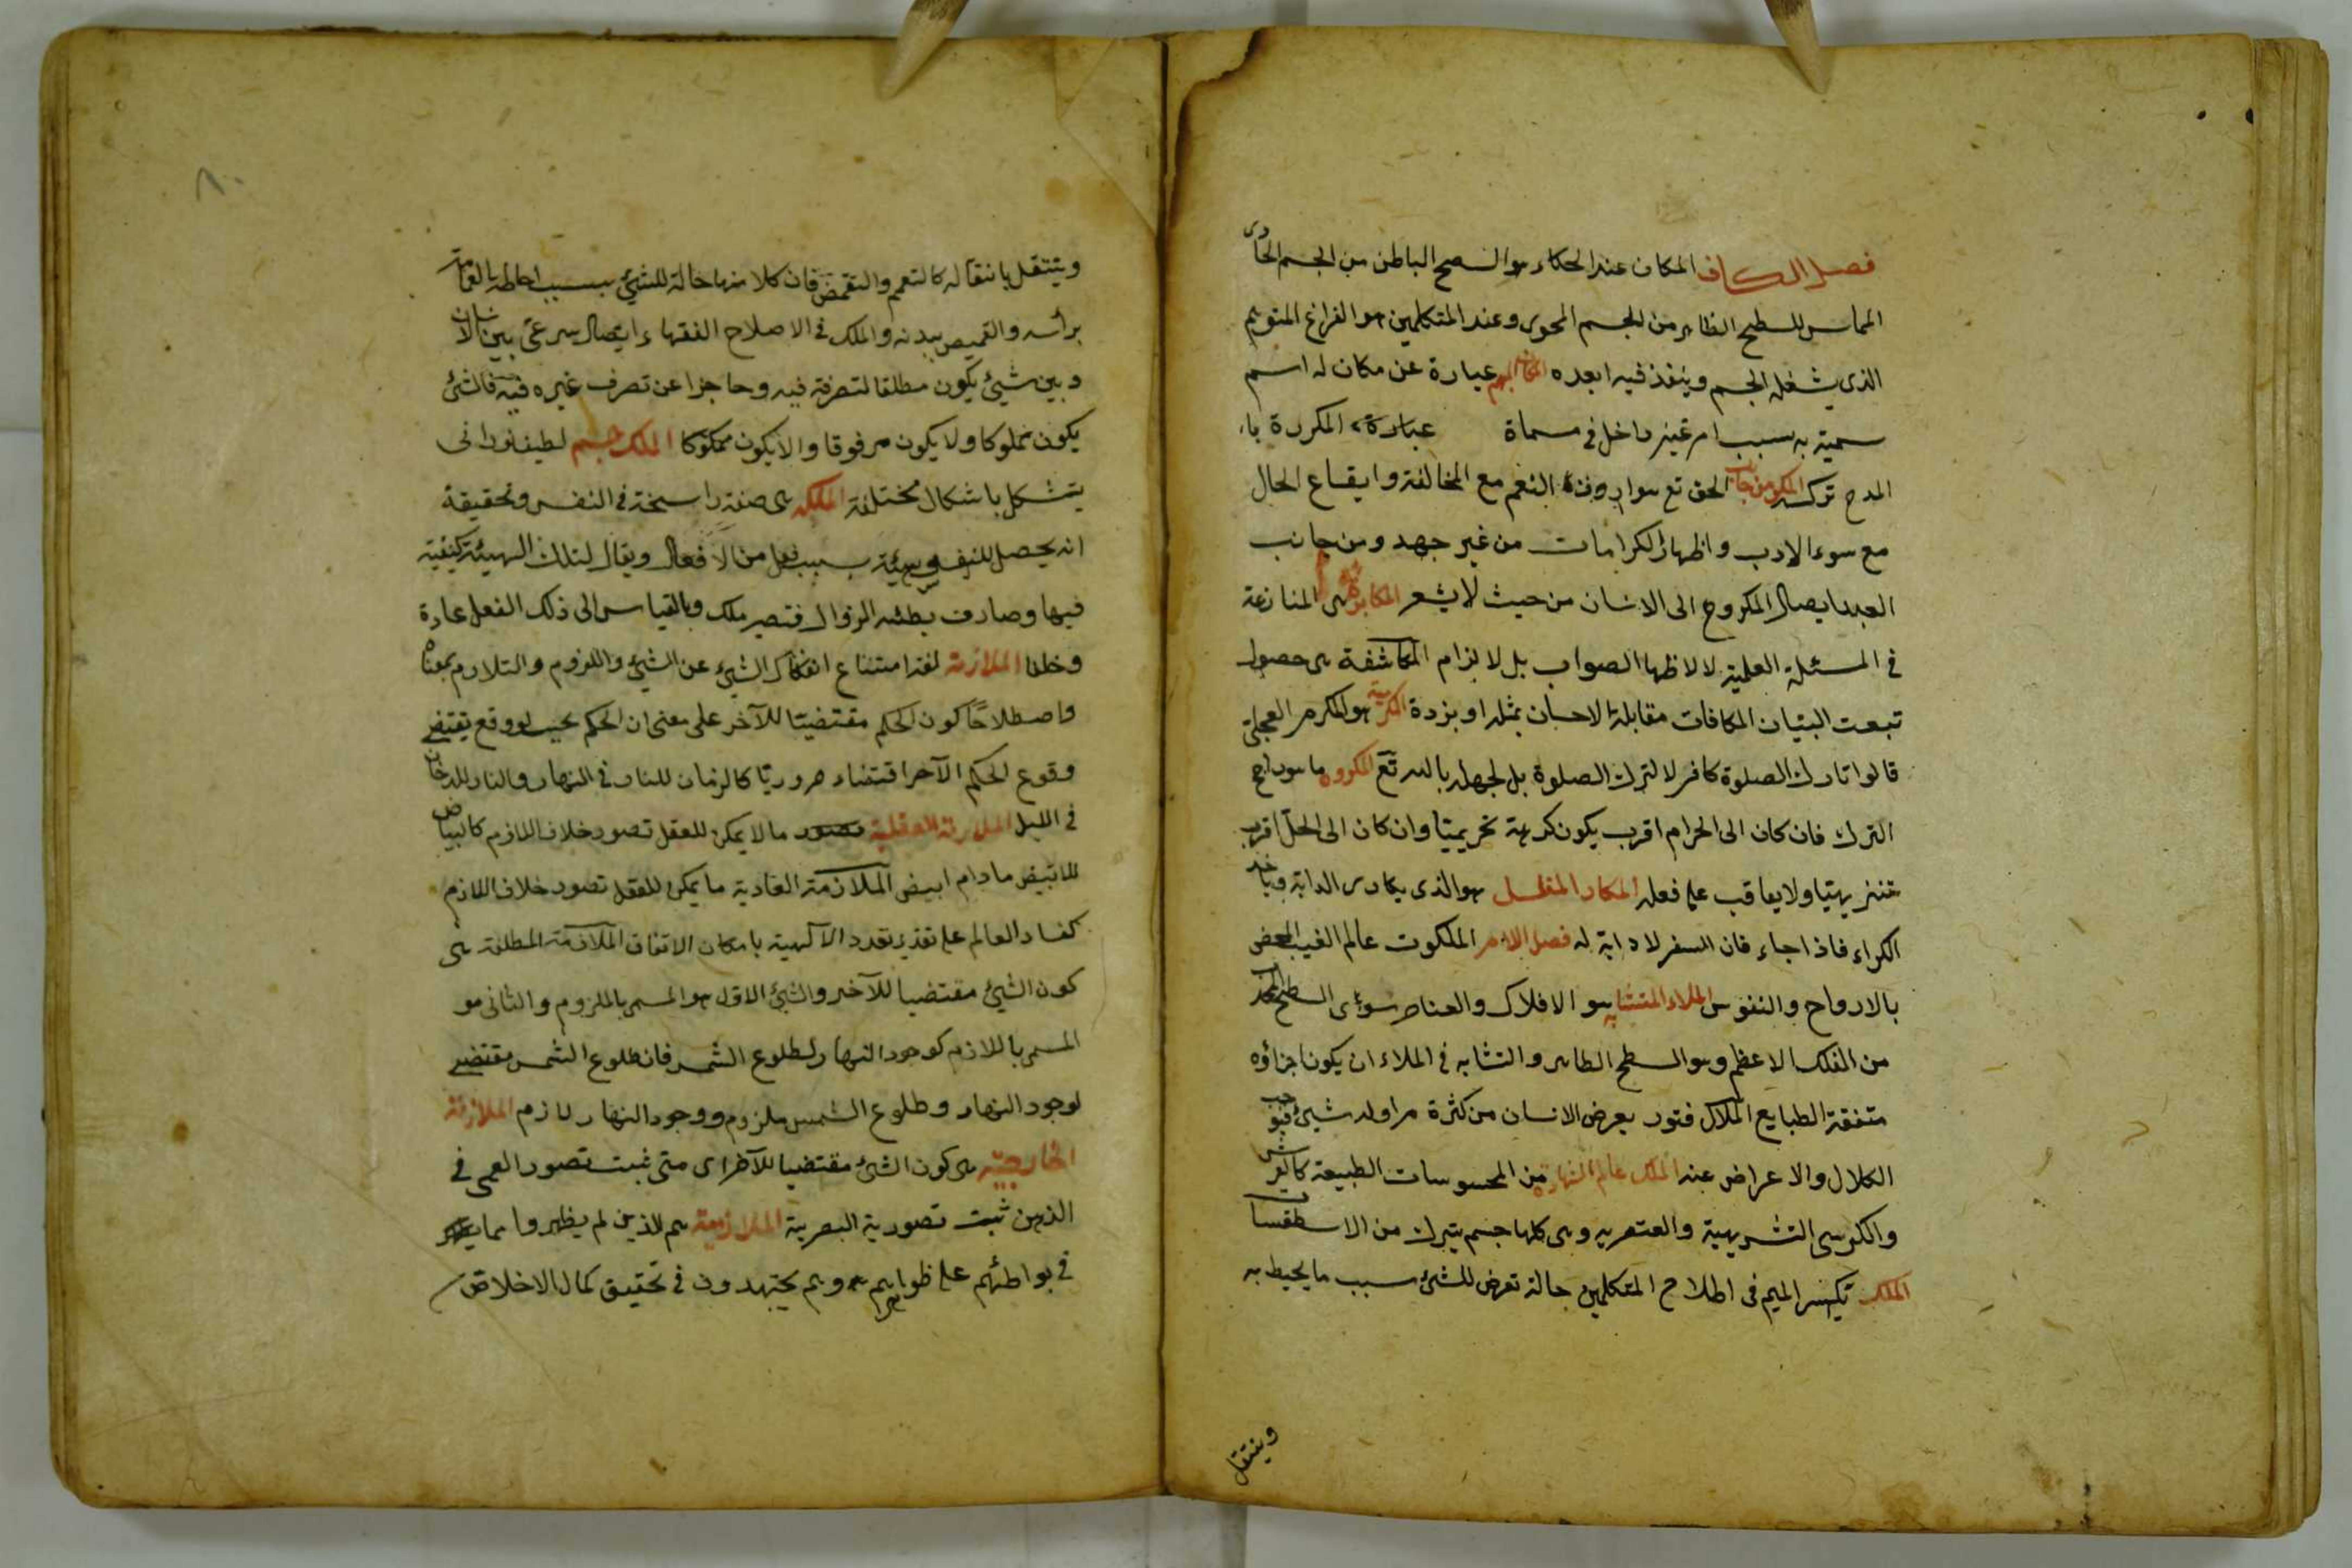 فصل الكاف المكان عند الحكماء هو السصح الباطن من الجسم الحاوى
المماس للسطح الظاهر من الجسم المحوى وعند المتكلمين هو الفراغ المتوهم
الذى يشغله الجسم وينفذ فيه ابعده المكان المبهم عبارة عن مكان له اسم
سميته به بسبب امر غير داخل فى مسماة عبارة المكررة با
المدح تركت المكر من جانب الحق تع هو ارداف النعم مع المخالفة وايقاع الحال
مع سوء الادب واظهار الكرامات من غير جهد ومن جانب
العبد ايصال المكروح الى الانسان من حيث لا يشعر المكابرة هى المنازعة
فى المسئلة العلمية لا لاظهار الصواب بل لالزام المكاشفة هى حصول
تبعت البيان المكافات مقابلة الاحسان بمثله او بزدة المكرمية هو المكرم العجلى
قالوا تارك الصلوة كافر لا لترك الصلوة بل لجهله بالله تع المكروه ما هو راجح
الترك فان كان الى الحرام اقرب يكون كرهة تحريميتا وان كان الى الحل اقرب
تنزيهيتا ولا يعاقب على فعله المكار المفلس هو الذى يكارى الدابة وياخذ
الكراء فاذا جاء فان السفر لا دابة له فصل اللام الملكوت عالم الغيب المختص
بالارواح والنفوس الملاء المتشابه هو الافلاك والعناصر سوءى السطح المحدب
من الفلك الاعظم وهو السطح الظاهر والتشابه فى الملاء ان يكون اجزاؤه
متفقة الطبايع الملال فتور يعرض الانسان من كثرة مزاوله شيئ فيوجب
الكلال والاعراض عنه الملك عالم الشهادة من المحسوسات الطبيعة كالعرش
والكرسى التشريهية والعنصريه وهى كلها جسم يتبرك من الاسطقسات
الملك بكسر الميم فى اطلاح المتكلمين حالة تعرض للشئ سبب ما يحيط به
وينتقل
وينتقل بانتقاله كالتعمم والتقمض فان كلا منها حالة للشئ بسبب احاطه بالعمامة
براسه والقميص ببدنه والملك فى الاصلاح الفقهاء ايتصال شرعى بين الانسان
وبين شيئ يكون مطلقا لتصرفه فيه وحاجزا عن تصرف غيره فيه فالشئ
يكون مملوكا ولا يكون مرقوقا والا يكون مملوكا الملك جسم لطيف نورانى
يتشكل باشكال مختلفة الملكه هى صفة راسخة فى النفس وتحقيقة
انه يحصل للنفس هيئة بسبب فعل من الافعال ويقال لتلك الهيئة كيفية
فيها وصارت بطئه الزوال فتصير ملك وبالقياس الى ذلك الفعل عادة
وخلقا الملازمة لغة امتناع انفكاك الشئ عن الشئ واللزوم والتلازم بمعناه
واصطلاحًا كون الحكم مقتضيتا للآخر على معنى ان الحكم بحيث لو وقع يقتضى
وقوع الحكم الآخر اقتضاء ضروريتا كالزمان للنار فى النهار والنار للدخان
فى الليل الملازمة العقلية تصور ما لا يمكن للعقل تصور خلاف اللازم كالبياض
للابيض مادام ابيض الملازمة العادية ما يمكن للعقل تصور خلاف اللازم
كفساد العالم على تقذير تعدد الآلهية بامكان الاتفاق الملازمة المطلقة هى
كون الشئ مقتضيا للآخر والشئ الاول هو المسمى بالملزوم والثانى هو
المسمى باللازم كوجود النهار لطلوع الشمس فان طلوع الشمس مقتضى
لوجود النهار وطلوع الشمس ملزوم ووجود النهار لازم الملازمة
الخارجيته هى كون الشئ مقتضيا للآخر اى متى ثبت تصور العمى فى
الذهن ثبت تصورية البصرية الملازميته هم الذين لم يظهروا مما
فى بواطنهم على ظواهرهم وهم يجتهدون فى تحقيق كمال الاخلاص
٨٠